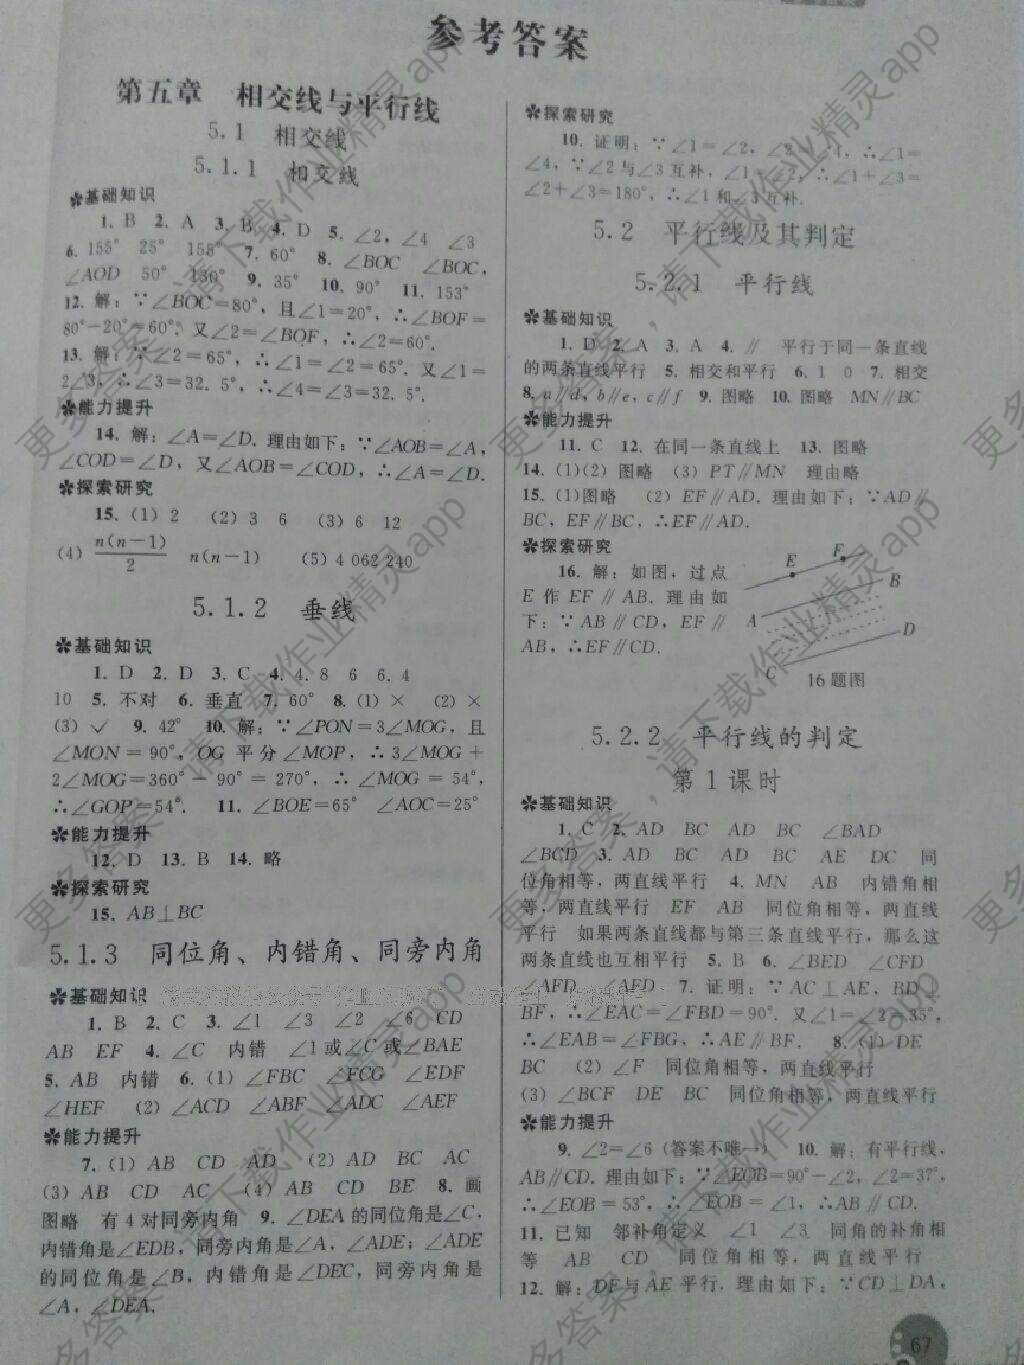 参考答案
第五章 相交线与平行线
5.1 相交线
5.1.1 相交线
✽基础知识
1. B 2. A 3. B 4. D 5. ∠2,∠4 ∠3
6. 155° 25° 155° 7. 60° 8. ∠BOC ∠BOC,
∠AOD 50° 130° 9. 35° 10. 90° 11. 153°
12. 解:∵∠BOC=80°,且∠1=20°,∴∠BOF=
80°-20°=60°.又∠2=∠BOF,∴∠2=60°.
13. 解:∵∠2=65°,∴∠1=∠2=65°.又∠1=
2∠3,∴∠3=32.5°,∴∠4=∠3=32.5°.
✽能力提升
14. 解:∠A=∠D.理由如下:∵∠AOB=∠A,
∠COD=∠D,又∠AOB=∠COD,∴∠A=∠D.
✽探索研究
15. (1) 2 (2) 3 6 (3) 6 12
(4) n(n-1)/2 n(n-1) (5) 4 062 240
5.1.2 垂线
✽基础知识
1. D 2. D 3. C 4. 4.8 6 6.4
10 5. 不对 6. 垂直 7. 60° 8. (1)× (2)×
(3)√ 9. 42° 10. 解:∵∠PON=3∠MOG,且
∠MON=90°,OG 平分∠MOP,∴3∠MOG+
2∠MOG=360°-90°=270°,∴∠MOG=54°,
∴∠GOP=54°. 11. ∠BOE=65° ∠AOC=25°
✽能力提升
12. D 13. B 14. 略
✽探索研究
15. AB⊥BC
5.1.3 同位角、内错角、同旁内角
✽基础知识
1. B 2. C 3. ∠1 ∠3 ∠2 ∠6 CD
AB EF 4. ∠C 内错 ∠1或∠C或∠BAE
5. AB 内错 6. (1) ∠FBC ∠FCG ∠EDF
∠HEF (2) ∠ACD ∠ABF ∠ADC ∠AEF
✽能力提升
7. (1) AB CD AD (2) AD BC AC
(3) AB CD AC (4) AB CD BE 8. 画
图略 有4对同旁内角 9. ∠DEA的同位角是∠C,
内错角是∠EDB,同旁内角是∠A,∠ADE;∠ADE
的同位角是∠B,内错角是∠DEC,同旁内角是
∠A,∠DEA.
✽探索研究
10. 证明:∵∠1=∠2,∠2=∠4,∴∠1=
∠4,∵∠2与∠3互补,∠1=∠2,∴∠1+∠3=
∠2+∠3=180°,∴∠1和∠3互补.
5.2 平行线及其判定
5.2.1 平行线
✽基础知识
1. D 2. A 3. A 4. ∥ 平行于同一条直线
的两条直线平行 5. 相交和平行 6. 1 0 7. 相交
8. a∥d,b∥e,c∥f 9. 图略 10. 图略 MN∥BC
✽能力提升
11. C 12. 在同一条直线上 13. 图略
14. (1)(2) 图略 (3) PT∥MN 理由略
15. (1)图略 (2) EF∥AD.理由如下:∵AD∥
BC,EF∥BC,∴EF∥AD.
✽探索研究
16. 解:如图,过点
E作EF∥AB.理由如
下:∵AB∥CD,EF∥
AB,∴EF∥CD.
E F
B
A
D
C
16题图
5.2.2 平行线的判定
第1课时
✽基础知识
1. C 2. AD BC AD BC ∠BAD
∠BCD 3. AD BC AD BC AE DC 同
位角相等,两直线平行 4. MN AB 内错角相
等,两直线平行 EF AB 同位角相等,两直线
平行 如果两条直线都与第三条直线平行,那么这
两条直线也互相平行 5. B 6. ∠BED ∠CFD
∠AFD ∠AFD 7. 证明:∵AC⊥AE,BD⊥
BF,∴∠EAC=∠FBD=90°.又∠1=∠2=35°,
∴∠EAB=∠FBG,∴AE∥BF. 8. (1) DE
BC (2) ∠F 同位角相等,两直线平行
(3) ∠BCF DE BC 同位角相等,两直线平行
✽能力提升
9. ∠2=∠6 (答案不唯一) 10. 解:有平行线,
AB∥CD.理由如下:∵∠EOB=90°-∠2,∠2=37°,
∴∠EOB=53°,∴∠EOB=∠1,∴AB∥CD.
11. 已知 邻补角定义 ∠1 ∠3 同角的补角相
等 AB CD 同位角相等,两直线平行
12. 解:DF与AE平行.理由如下:∵CD⊥DA,
67
更多答案,请下载作业精灵app
更多答案,请下载作业精灵app
更多答案,请下载作业精灵app
更多答案,请下载作业精灵app